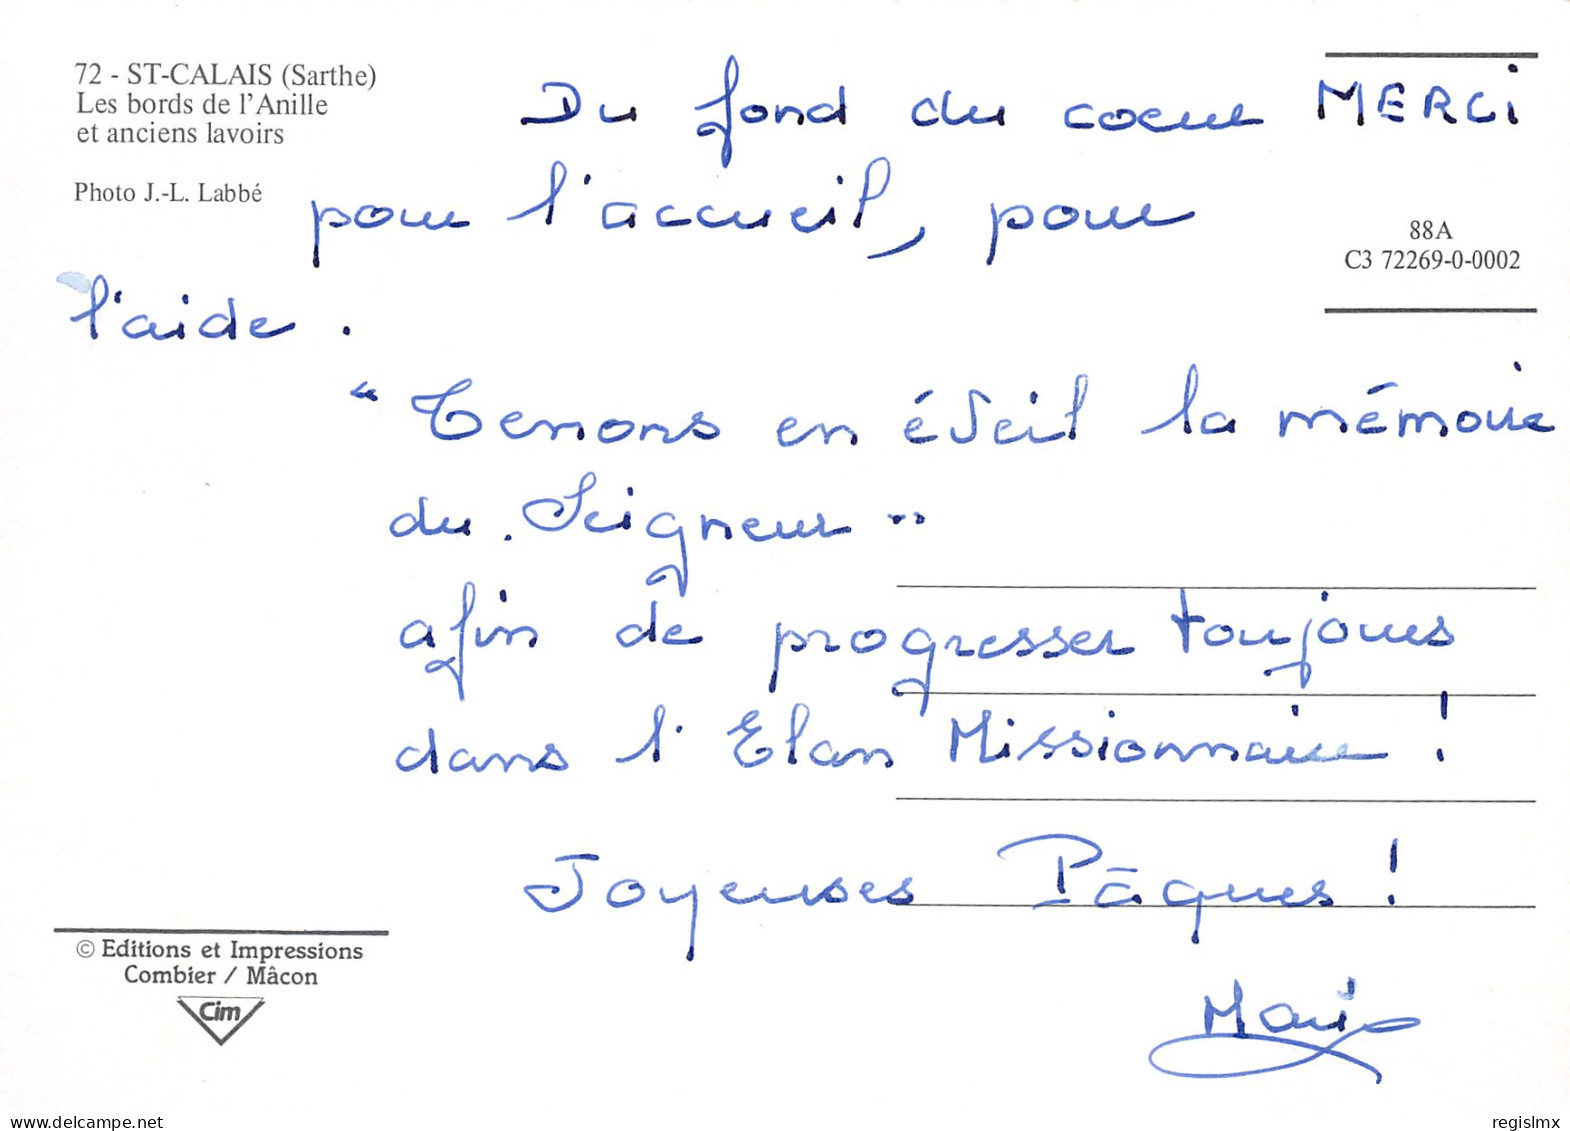 72 - ST-CALAIS (Sarthe)
Les bords de l'Anille
et anciens lavoirs
Photo J.-L. Labbé
Du fond du coeur MERCI
pour l'accueil, pour
l'aide.
88A
C3 72269-0-0002
"Tenons en éveil la mémoire
du Seigneur"
afin de progresser toujours
dans l'Elan Missionnaire !
Joyeuses Pâques !
© Editions et Impressions
Combier / Mâcon
Cim
delcampe.net
regislmx